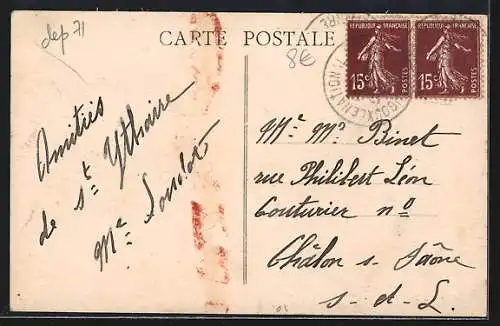 dep 71
CARTE POSTALE
8€
RÉPUBLIQUE FRANÇAISE
15c POSTES
RÉPUBLIQUE FRANÇAISE
15c POSTES
Amitiés
de St Ythaire
Me
Me Mr Binet
rue Philibert Léon
Couturier no
Châlon s- Saône
S- et- L.